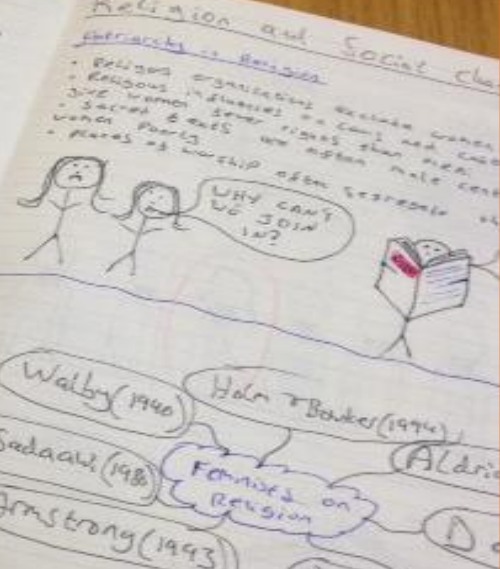 Religion and Social Cha
Patriarchy in Religion
• Religous organisations exclude women
• Religous influences on laws and
give women fewer rights than men.
• Sacred texts are often male cent
women poorly
• places of worship often segregate
WHY CAN'T
WE JOIN
IN?
Walby (1990)
Holm & Bowker (1994)
Sadaawi (1980)
Aldri
Feminists on
Religion
Armstrong (1993)
D